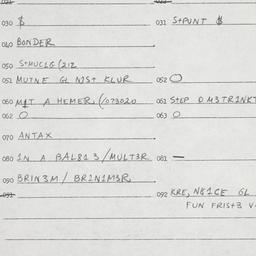 030 $ 031 StPUNT $
040 BONDER
050 StMUC1G (212
051 MUTNE GL N1St KLUR 052 O
060 M1T A HEMER, (/073020 061 StEP D M3TR1NKT
062 O 063 O
070 ANTAX
080 1N A BAL81 3 / MULT3R 081 —
090 BR1N3M / BR1N1M3R
091 092 KRE, N81CE GL
FUN FR1St3 V